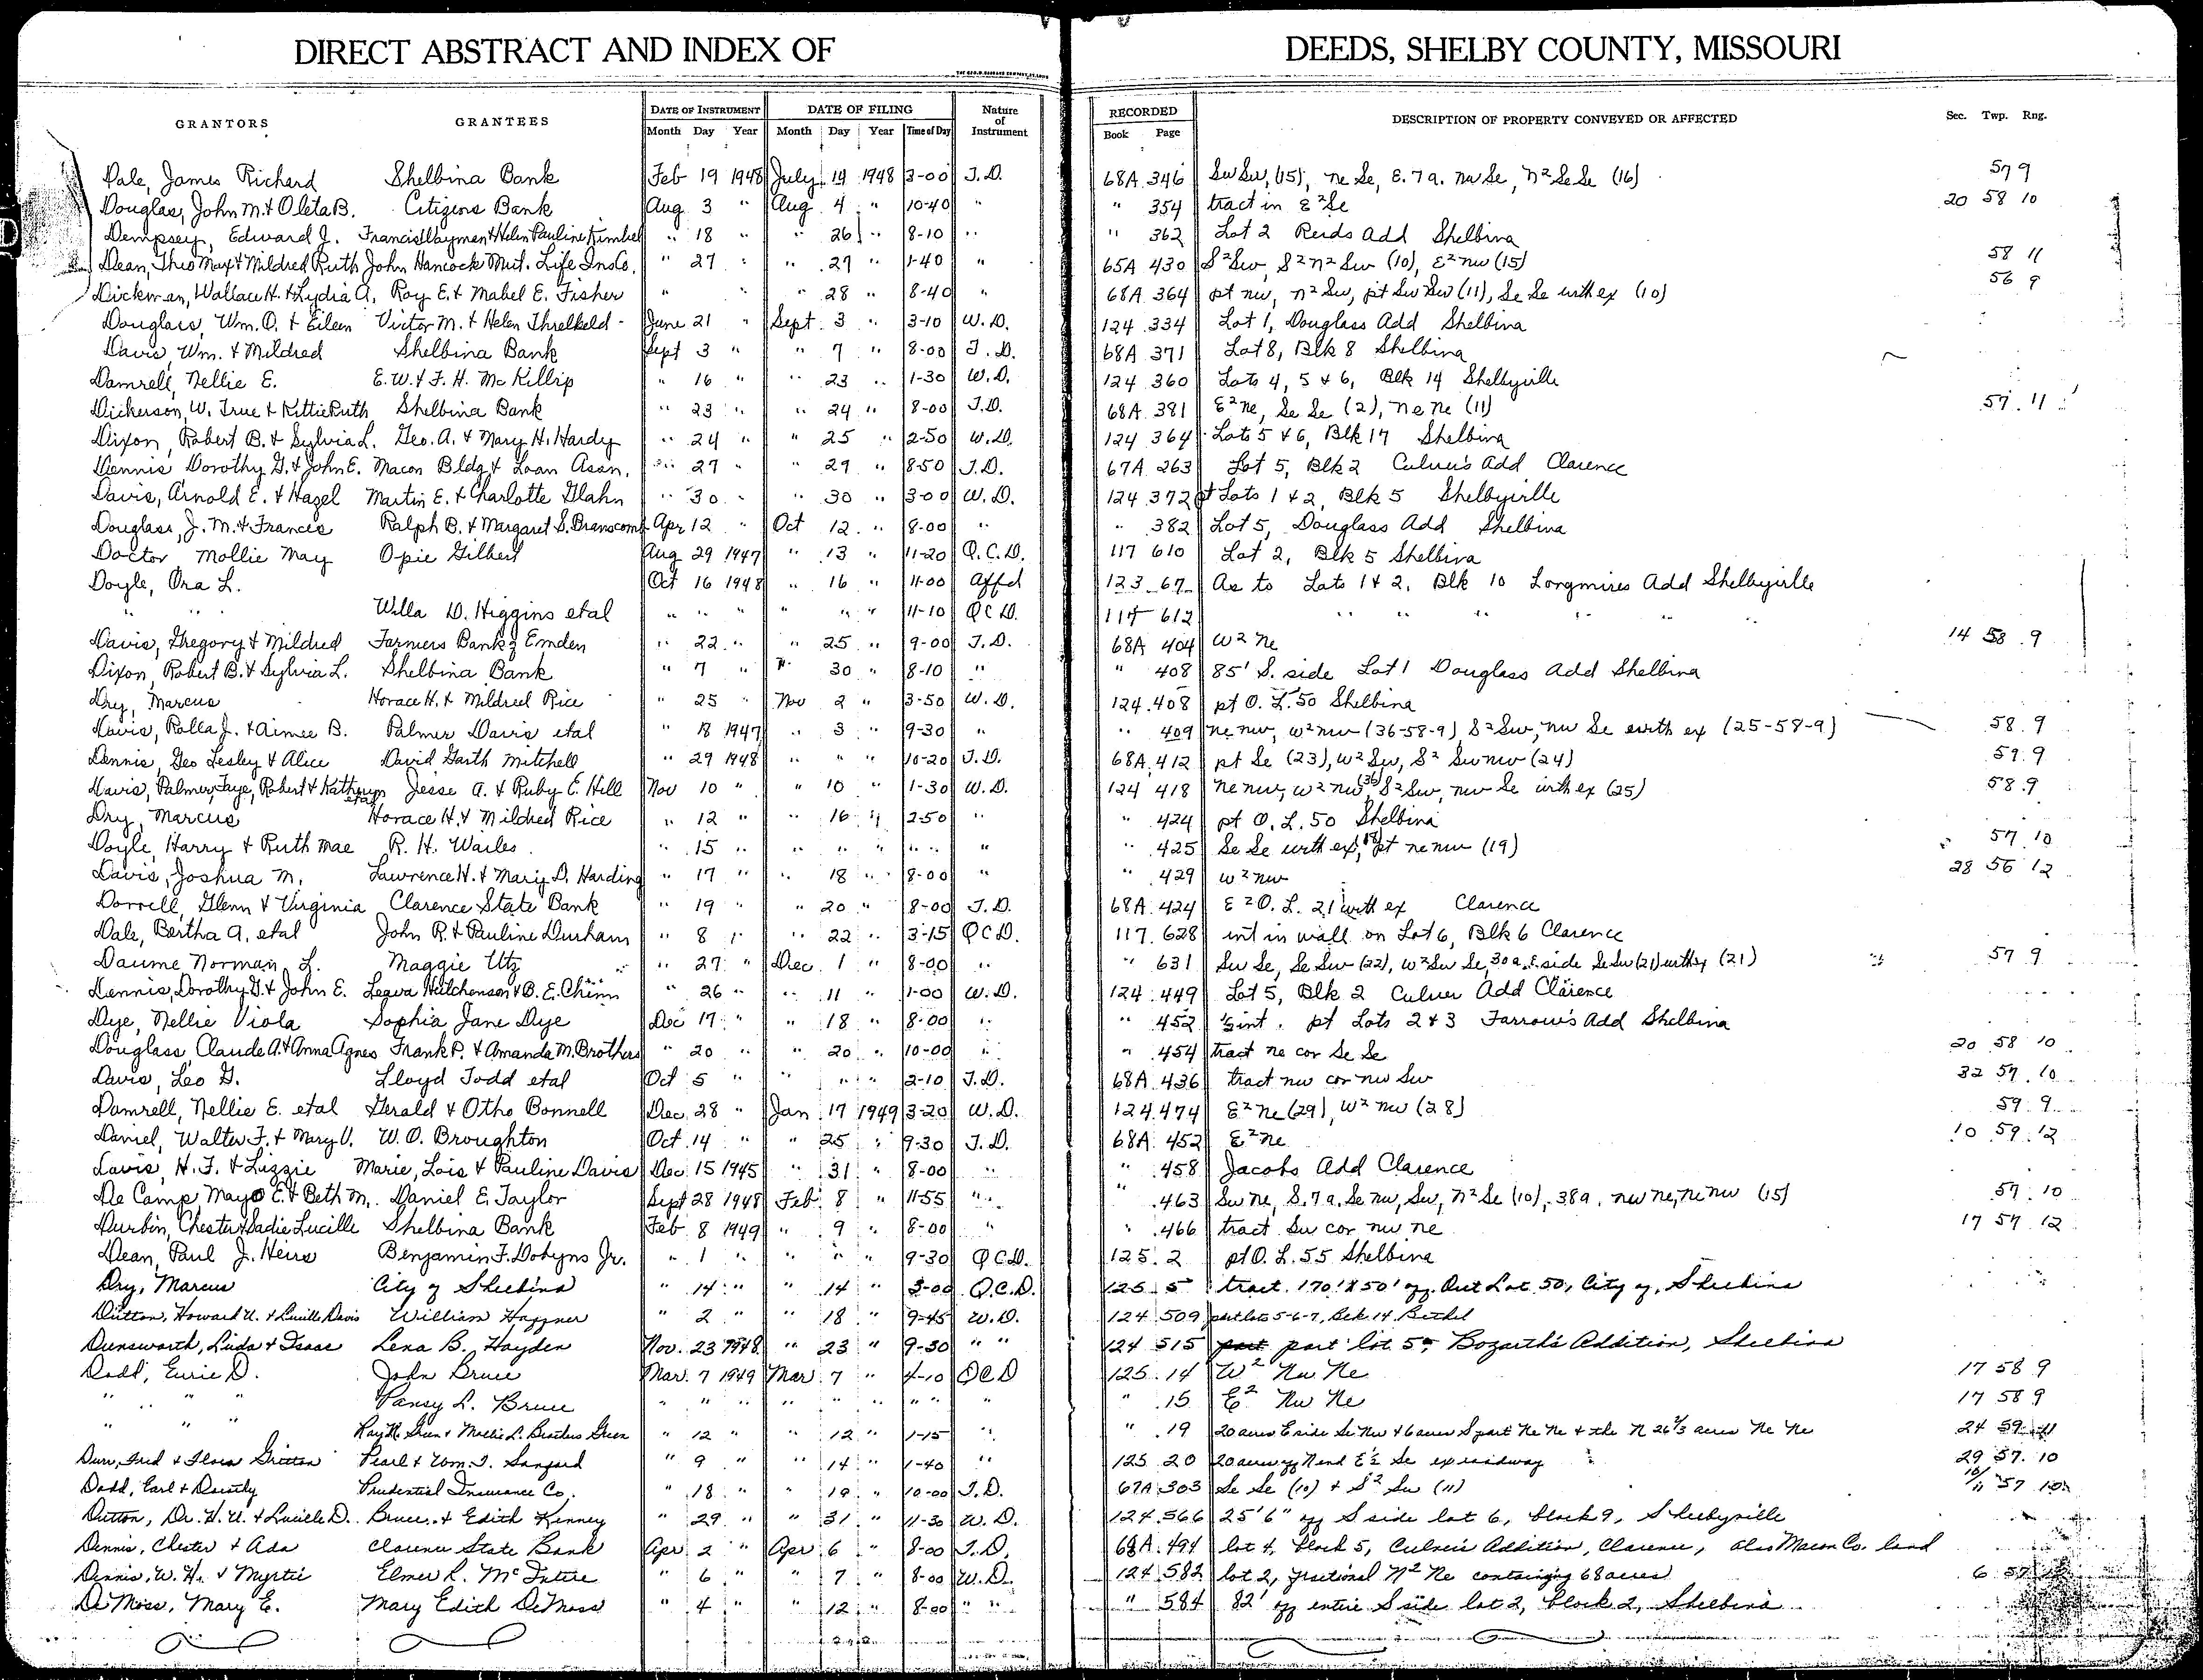 DIRECT ABSTRACT AND INDEX OF DEEDS, SHELBY COUNTY, MISSOURI
GRANTORS GRANTEES DATE OF INSTRUMENT DATE OF FILING Nature of Instrument RECORDED DESCRIPTION OF PROPERTY CONVEYED OR AFFECTED Sec. Twp. Rng.
Month Day Year Month Day Year Time of Day Book Page
Dale, James Richard Shelbina Bank Feb 19 1948 July 19 1948 3-00 T.D. 68A 346 Sw Sw, (15), ne Se, E. 7a. nw Se, N² Se Se (16) 57 9
Douglas, John M. & Oleta B. Citizens Bank Aug 3 " Aug 4 " 10-40 " " 354 tract in E² Se 20 58 10
Dempsey, Edward J. Francis Waymen & Helen Pauline Kimbel " 18 " " 26 " 8-10 " " 362 Lot 2 Reids Add Shelbina
Dean, Theo Max & Mildred Ruth John Hancock Mut. Life Ins Co. " 27 " " 27 " 1-40 " 65A 430 S² Sw, S² N² Sw (10), E² nw (15) 58 11
Dickman, Wallace H. & Lydia A. Roy E. & Mabel E. Fisher " " " 28 " 8-40 " 68A 364 pt nw, n² Sw, pt Sw Sw (11), Se Se with ex (10) 56 9
Douglass, Wm. O. & Eileen Victor M. & Helen Threlkeld June 21 " Sept 3 " 3-10 W.D. 124 334 Lot 1, Douglass Add Shelbina
Davis, Wm. & Mildred Shelbina Bank Sept 3 " " 7 " 8-00 T.D. 68A 371 Lot 8, Blk 8 Shelbina
Damrell, Nellie E. E.W. & F.H. McKillip " 16 " " 23 " 1-30 W.D. 124 360 Lots 4, 5 & 6, Blk 14 Shelbyville
Dickerson, W. True & Kittie Ruth Shelbina Bank " 23 " " 24 " 8-00 T.D. 68A 381 E² ne, Se Se (2), ne ne (11) 57 11
Dixon, Robert B. & Sylvia L. Geo. A. & Mary H. Hardy " 24 " " 25 " 2-50 W.D. 124 364 Lots 5 & 6, Blk 17 Shelbina
Dennis Dorothy G. & John E. Macon Bldg & Loan Assn. " 27 " " 29 " 8-50 T.D. 67A 263 Lot 5, Blk 2 Culver's Add Clarence
Davis, Arnold E. & Hazel Martin E. & Charlotte Glahn " 30 " " 30 " 3-00 W.D. 124 372 pt Lots 1 & 2, Blk 5 Shelbyville
Douglass, J. M. & Francis Ralph B. & Margaret S. Branscomb Apr 12 " Oct 12 " 8-00 " " 382 Lot 5, Douglass Add Shelbina
Doctor Mollie May Opie Gilbert Aug 29 1947 " 13 " 11-20 Q.C.D. 117 610 Lot 2, Blk 5 Shelbina
Doyle, Ora L. Oct 16 1948 " 16 " 11-00 Affd 123 67 As to Lots 1 & 2, Blk 10 Longmires Add Shelbyville
" " Willa D. Higgins etal " " " " " " 11-10 QCD. 117 612 " " " " " "
Davis, Gregory & Mildred Farmers Bank of Emden " 22 " " 25 " 9-00 T.D. 68A 404 W² ne 14 58 9
Dixon, Robert B. & Sylvia L. Shelbina Bank " 7 " " 30 " 8-10 " " 408 85' S. side Lot 1 Douglass Add Shelbina
Dry, Marcus Horace H. & Mildred Rice " 25 " Nov 2 " 3-50 W.D. 124 408 pt O.L. 50 Shelbina
Davis, Rolla J. & Aimee B. Palmer Davis etal " 18 1947 " 3 " 9-30 " " 409 ne nw, w² nw (36-58-9) S² Sw, nw Se with ex (25-58-9) 58 9
Dennis, Geo Lesley & Alice David Garth Mitchell " 29 1948 " " " 10-20 T.D. 68A 412 pt Se (23), w² Sw, S² Sw nw (24) 59 9
Davis, Palmer, Faye, Robert & Kathryn etal Jesse A. & Ruby E. Hill Nov 10 " " 10 " 1-30 W.D. 124 418 ne nw, w² nw (36) S² Sw, nw Se with ex (25) 58 9
Dry, Marcus Horace H. & Mildred Rice " 12 " " 16 " 2-50 " " 424 pt O.L. 50 Shelbina
Doyle, Harry & Ruth Mae R. H. Wailes " 15 " " " " " " " 425 Se Se with ex, (18) pt ne nw (19) 57 10
Davis, Joshua M. Lawrence H. & Mary D. Harding " 17 " " 18 " 8-00 " " 429 w² nw 28 56 12
Dorrell, Glenn & Virginia Clarence State Bank " 19 " " 20 " 8-00 T.D. 68A 424 E² O.L. 21 with ex Clarence
Dale, Bertha A. etal John R. & Pauline Durham " 8 " " 22 " 3-15 QCD. 117 628 int in wall on Lot 6, Blk 6 Clarence
Daume Norman L. Maggie Utz " 27 " Dec 1 " 8-00 " " 631 Sw Se, Se Sw (22), w² Sw Se, 30a. E. side Se Sw (21) with ex (21) 57 9
Dennis, Dorothy G. & John E. Leava Hutchenson & B. E. Chinn " 26 " " 11 " 1-00 W.D. 124 449 Lot 5, Blk 2 Culver Add Clarence
Dye, Nellie Viola Sophia Jane Dye Dec 17 " " 18 " 8-00 " " 452 int. pt Lots 2 & 3 Farrow's Add Shelbina
Douglass, Claude A. & Anna Agnes Frank P. & Amanda M. Brothers " 20 " " 20 " 10-00 " " 454 tract ne cor Se Se 20 58 10
Davis, Leo G. Lloyd Todd etal Oct 5 " " " " 2-10 T.D. 68A 436 tract nw cor nw Sw 32 57 10
Damrell, Nellie E. etal Gerald & Otho Bonnell Dec 28 " Jan 17 1949 3-20 W.D. 124 474 E² ne (29), W² nw (28) 59 9
Daniel, Walter F. & Mary V. W. O. Broughton Oct 14 " " 25 " 9-30 T.D. 68A 452 E² ne 10 59 12
Davis, H. F. & Lizzie Marie, Lois & Pauline Davis Dec 15 1945 " 31 " 8-00 " " 458 Jacobs Add Clarence
De Camp, Mayo E. & Beth M. Daniel E. Taylor Sept 28 1948 Feb 8 " 11-55 " " 463 Sw ne, S. 7a. Se nw, Sw, n² Se (10), 38a. nw ne, ne nw (15) 57 10
Durbin, Chester & Sadie Lucille Shelbina Bank Feb 8 1949 " 9 " 8-00 " " 466 tract Sw cor nw ne 17 57 12
Dean, Paul J. Heirs Benjamin F. Dobyns Jr. " 1 " " " " 9-30 QCD. 125 2 pt O.L. 55 Shelbina
Dry, Marcus City of Shelbina " 14 " " 14 " 3-00 Q.C.D. 125 5 tract 170' X 50' of Out Lot 50, City of Shelbina
Dutton, Howard U. & Lucille Davis William Haffner " 2 " " 18 " 9-45 W.D. 124 509 part lots 5-6-7, Blk 14 Bethel
Dunsworth, Lida & Isaac Lena B. Hayden Nov. 23 1948 " 23 " 9-30 " " 124 515 part part lot 5, Bozarth's Addition, Shelbina
Dodd, Eurie D. John Bruce Mar. 7 1949 Mar 7 " 4-10 QCD 125 14 W² Nw Ne 17 58 9
" " " Pansy L. Bruce " " " " " " " " " 15 E² Nw Ne 17 58 9
" " " Ray M. Green & Mollie L. Brothers Green " 12 " " 12 " 1-15 " " 19 20 acres E side Se Nw & 6 acres S part Ne Ne & the N 26⅔ acres Ne Ne 24 59 11
Durr, Fred & Flora Gritton Pearl & Wm. T. Sanford " 9 " " 14 " 1-40 " 125 20 20 acres off N end E½ Se ex roadway 29 57 10
Dodd, Earl & Dorothy Prudential Insurance Co. " 18 " " 19 " 10-00 T.D. 67A 303 Se Se (10) & S² Sw (11) 10/11 57 10
Dutton, Dr. H. U. & Lucille D. Bruce & Edith Kinney " 29 " " 31 " 11-30 W.D. 124 566 25'6" off S side lot 6, block 9, Shelbyville
Dennis, Chester & Ada Clarence State Bank Apr 2 " Apr 6 " 8-00 T.D. 68A 494 lot 4, block 5, Culver's Addition, Clarence, also Macon Co. land
Dennis, W. H. & Myrtie Elmer L. McIntire " 6 " " 7 " 8-00 W.D. 124 582 lot 2, fractional N² Ne containing 68 acres 6 57
DeMoss, Mary E. Mary Edith DeMoss " 4 " " 12 " 8-00 " " " 584 82' off entire S side lot 2, block 2, Shelbina